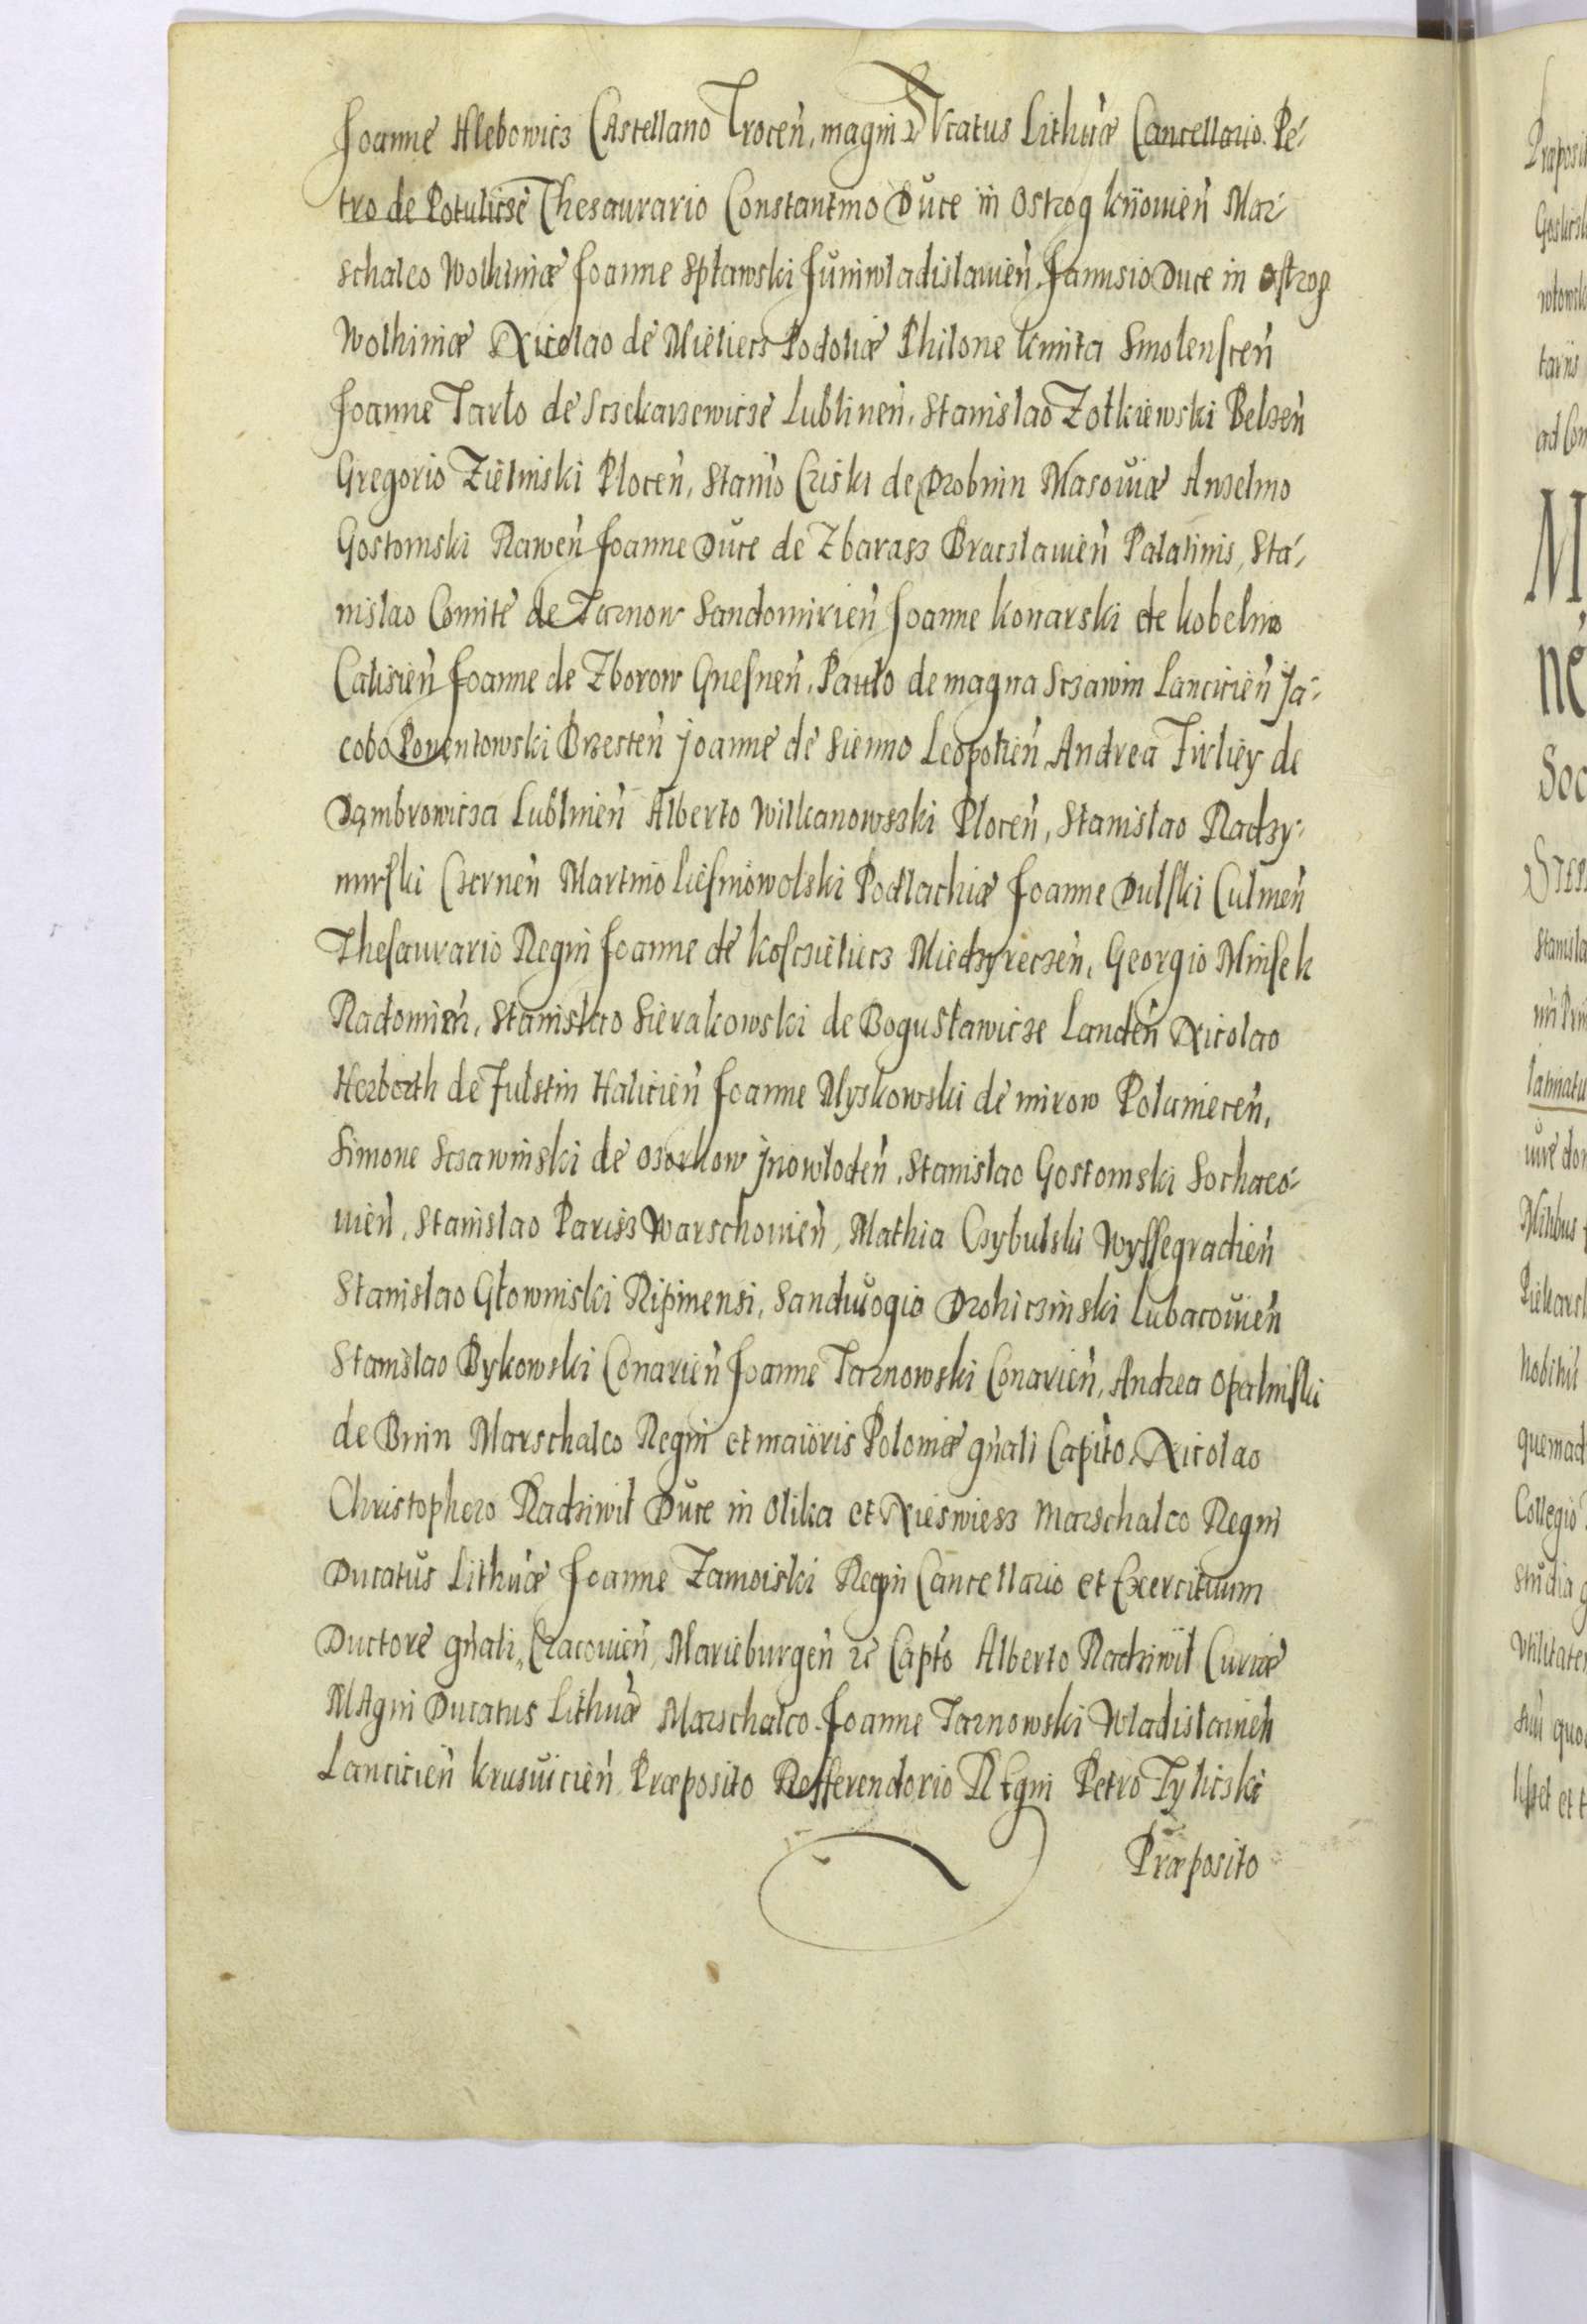 Joanne Hlebowicz Castellano Trocen̄, magni Ducatus Lithūæ Cancellario. Pe-
tro de Potulicze Thesaurario Constantino Duce in Ostrog kijouien̄ Mar-
schalco Wolhiniæ Joanne Spławski Juniwladislauien̄. Janusio Duce in ostrog
Wolhiniæ Nicolao de Mieliecz Podoliæ Philone kmita Smolenscen̄
Joanne Tarło de Sczekarzewicze Lublinen̄. Stanislao Zołkiewski Belzen̄
Gregorio Zielinski Plocen̄, Stanio Criski de Drobnin Masouiæ Anzelmo
Gostomski Rawen̄ Joanne Duce de Zbarasz Braczlauien̄ Palatinis, Sta-
nislao Comite de Tarnow Sandomirien̄ Joanne konarski de kobelno
Calisien̄ Joanne de Zborow Gnesnen̄. Paulo de magna Sczawin Lancicien̄ Ja-
cobo Ponentowski Brzesten̄ Joanne de Sienno Leopolien̄ Andrea Firliey de
Dąmbrowicza Lublinien̄ Alberto Wilkanowszki Plocen̄, Stanislao Radzy-
minski Czernen̄ Martino Liesniowolski Podlachiæ Joanne Dulski Culmen̄
Thesaurario Regni Joanne de kosczieliecz Miedzyreczen̄, Georgio Minsek
Radomien̄, Stanislao Sierakowski de Bogusławicze Landen̄ Nicolao
Herborth de Fulstin Halicien̄ Joanne Myskowski de mirow Polaniecen̄,
Simone Sczawinski de ozorkow Jnowłoden̄, Stanislao Gostomski Sochaco-
uien̄, Stanislao Parisz Warschouien̄, Mathia Czybulski Wyssegradien̄
Stanislao Głowinski Ripinensi, Sanduogio Drohiczinski Lubacouien̄
Stanislao Bykowski Conarien̄ Joanne Tarnowski Conarien̄, Andrea Opalinski
de Bnin Marschalco Regni et maioris Poloniæ gn̄ali Capito. Nicolao
Christophero Radziwil Duce in Olika et Nieswiesz Marschalco Regni
Ducatus Lithūæ Joanne Zamoiski Regni Cancellario et Exercituum
Ductore gn̄ali, Cracouien̄, Marieburgen̄ ꝛc Capto Alberto Radziwil Curiæ
MAgni Ducatus Lithūæ Marschalco. Joanne Tarnowski Wladislauien̄
Lancicien̄ krusuicien̄ Præposito Refferendorio REgni Petro Tyliczki
Præposito